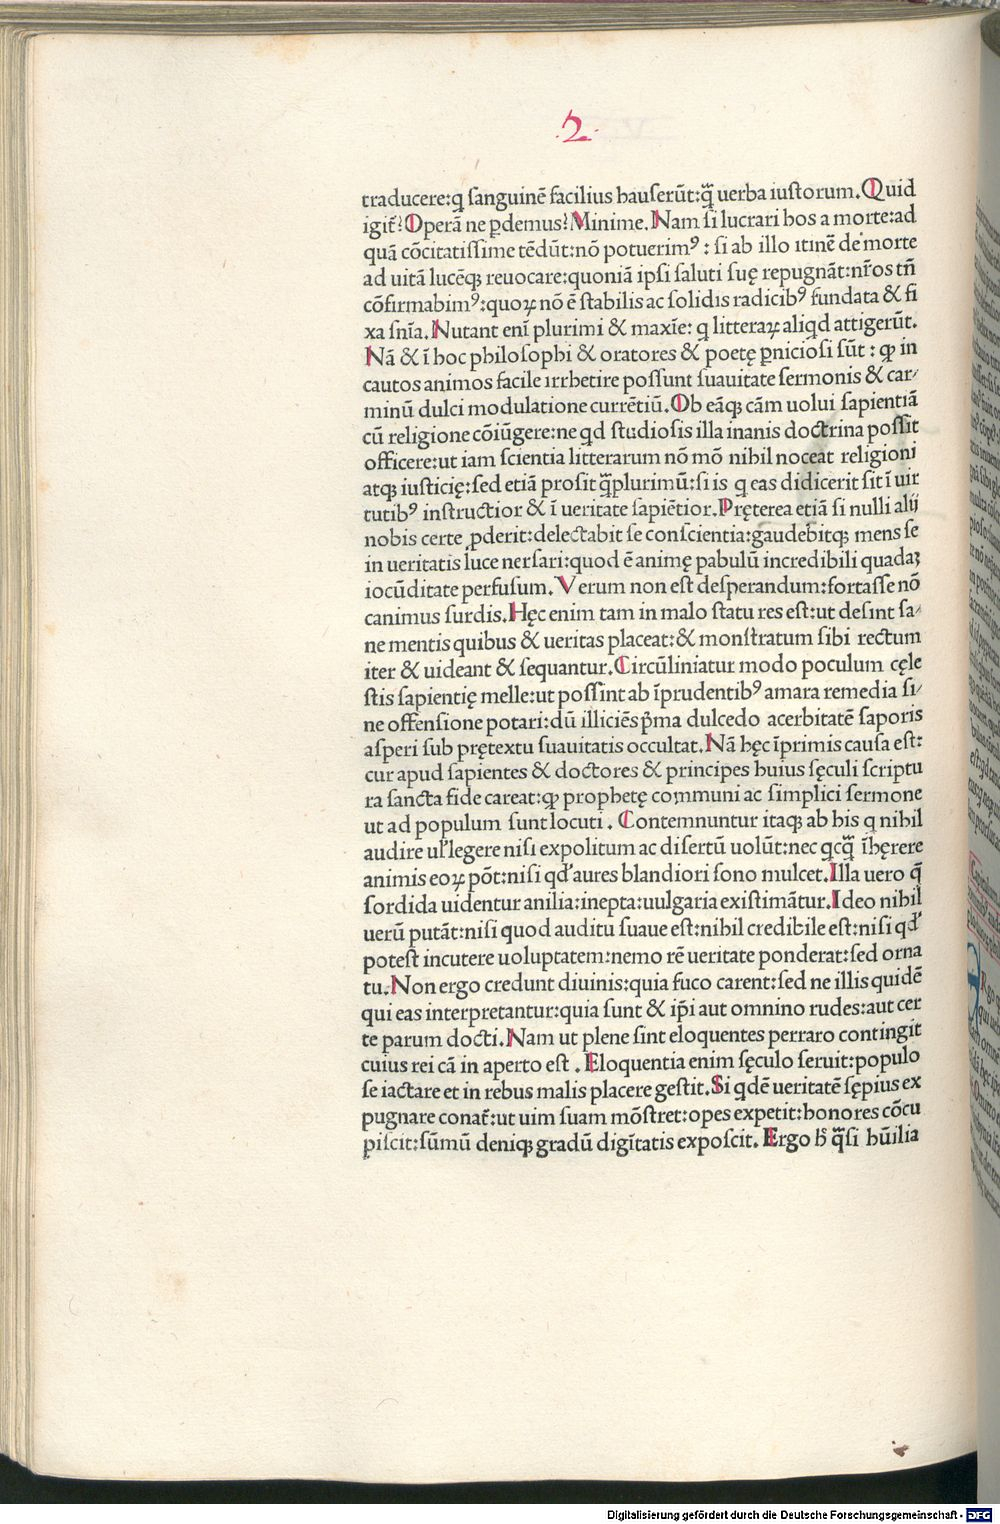 .2.
traducere:q ſanguinē facilius hauſerūt:q̄ uerba iuſtorum.Quid
igit̄? Operā ne ꝑdemus? Minime. Nam ſi lucrari hos a morte:ad
quā cōcitatiſſime tēdūt:nō potuerimꝰ: ſi ab illo itinē deuio morte
ad uitā lucēqꝫ reuocare:quoniā ipſi ſaluti ſuę repugnāt:nr̄os tn̄
cōfirmabimꝰ:quoꝝ nō ē ſtabilis ac ſolidis radicibꝰ fundata & fi
xa ſnīa.Nutant enī plurimi & maxīe: q litteraꝝ aliqd attigerūt.
Nā & ī hoc philoſophi & oratores & poetę ꝑnicioſi ſūt: ꝙ in
cautos animos facile irrhetire poſſunt ſuauitate ſermonis & car⸗
minū dulci modulatione currētiū.Ob eāqꝫ cām uolui ſapientiā
cū religione cōiūgere:ne qd ſtudioſis illa inanis doctrina poſſit
officere:ut iam ſcientia litterarum nō mō nihil noceat religioni
atqꝫ iuſticię:ſed etiā proſit q̄plurimū:ſi is q eas didicerit ſit ī uir
tutibꝰ inſtructior & ī ueritate ſapiētior.Pręterea etiā ſi nulli alij
nobis certe ꝓderit:delectabit ſe conſcientia:gaudebitqꝫ mens ſe
in ueritatis luce uerſari:quod ē animę pabulū incredibili quadaꝫ
iocūditate perfuſum. Verum non eſt deſperandum:fortaſſe nō
canimus ſurdis.Hęc enim tam in malo ſtatu res eſt:ut deſint ſa⸗
ne mentis quibus & ueritas placeat:& monſtratum ſibi rectum
iter & uideant & ſequantur.Circūliniatur modo poculum cęle
ſtis ſapientię melle:ut poſſint ab īprudentibꝰ amara remedia ſi⸗
ne offenſione potari:dū illiciēs p̄ma dulcedo acerbitatē ſaporis
aſperi ſub prętextu ſuauitatis occultat.Nā hęc īprimis cauſa eſt:
cur apud ſapientes & doctores & principes huius ſęculi ſcriptu
ra ſancta fide careat:ꝙ prophetę communi ac ſimplici ſermone
ut ad populum ſunt locuti. Contemnuntur itaqꝫ ab his q nihil
audire ul̓ legere niſi expolitum ac diſertū uolūt:nec qcq̄ īhęrere
animis eoꝝ pōt:niſi qd̓ aures blandiori ſono mulcet.Illa uero q̄
ſordida uidentur anilia:inepta:uulgaria exiſtimātur.Ideo nihil
uerū putāt:niſi quod auditu ſuaue eſt:nihil credibile eſt:niſi qd̓
poteſt incutere uoluptatem:nemo rē ueritate ponderat:ſed orna
tu.Non ergo credunt diuinis:quia fuco carent:ſed ne illis quidē
qui eas interpretantur:quia ſunt & ip̄i aut omnino rudes:aut cer
te parum docti.Nam ut plene ſint eloquentes perraro contingit
cuius rei cā in aperto eſt. Eloquentia enim ſęculo ſeruit:populo
ſe iactare et in rebus malis placere geſtit.Si qdē ueritatē ſępius ex
pugnare conat̄:ut uim ſuam mōſtret:opes expetit:honores cōcu
piſcit:ſūmū deniqꝫ gradū digītatis expoſcit. Ergo h̓ q̄ſi hūilia
Digitalisierung gefördert durch die Deutsche Forschungsgemeinschaft - DFG